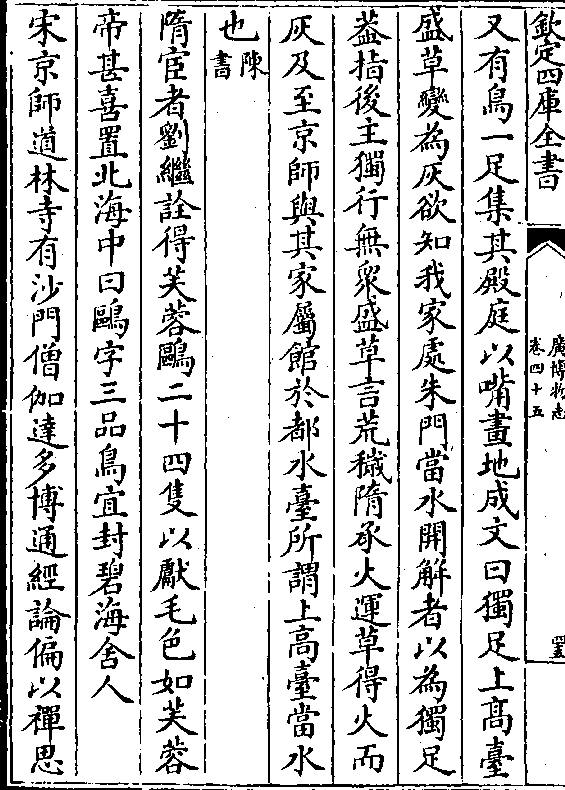 欽定四庫全書
廣博物志
卷四十五
又有鳥一足集其殿庭以嘴畫地成文曰獨足上髙臺
盛草變為灰欲知我家處朱門當水開解者以為獨足
葢指後主獨行無衆盛草言荒穢隋承火運草得火而
灰及至京師與其家屬館於都水臺所謂上高臺當水
也陳書
隋宦者劉繼詮得芙蓉鷗二十四隻以獻毛色如芙蓉
帝甚喜置北海中曰鷗字三品鳥宜封碧海舍人
宋京師道林寺有沙門僧伽達多博通經論偏以禪思